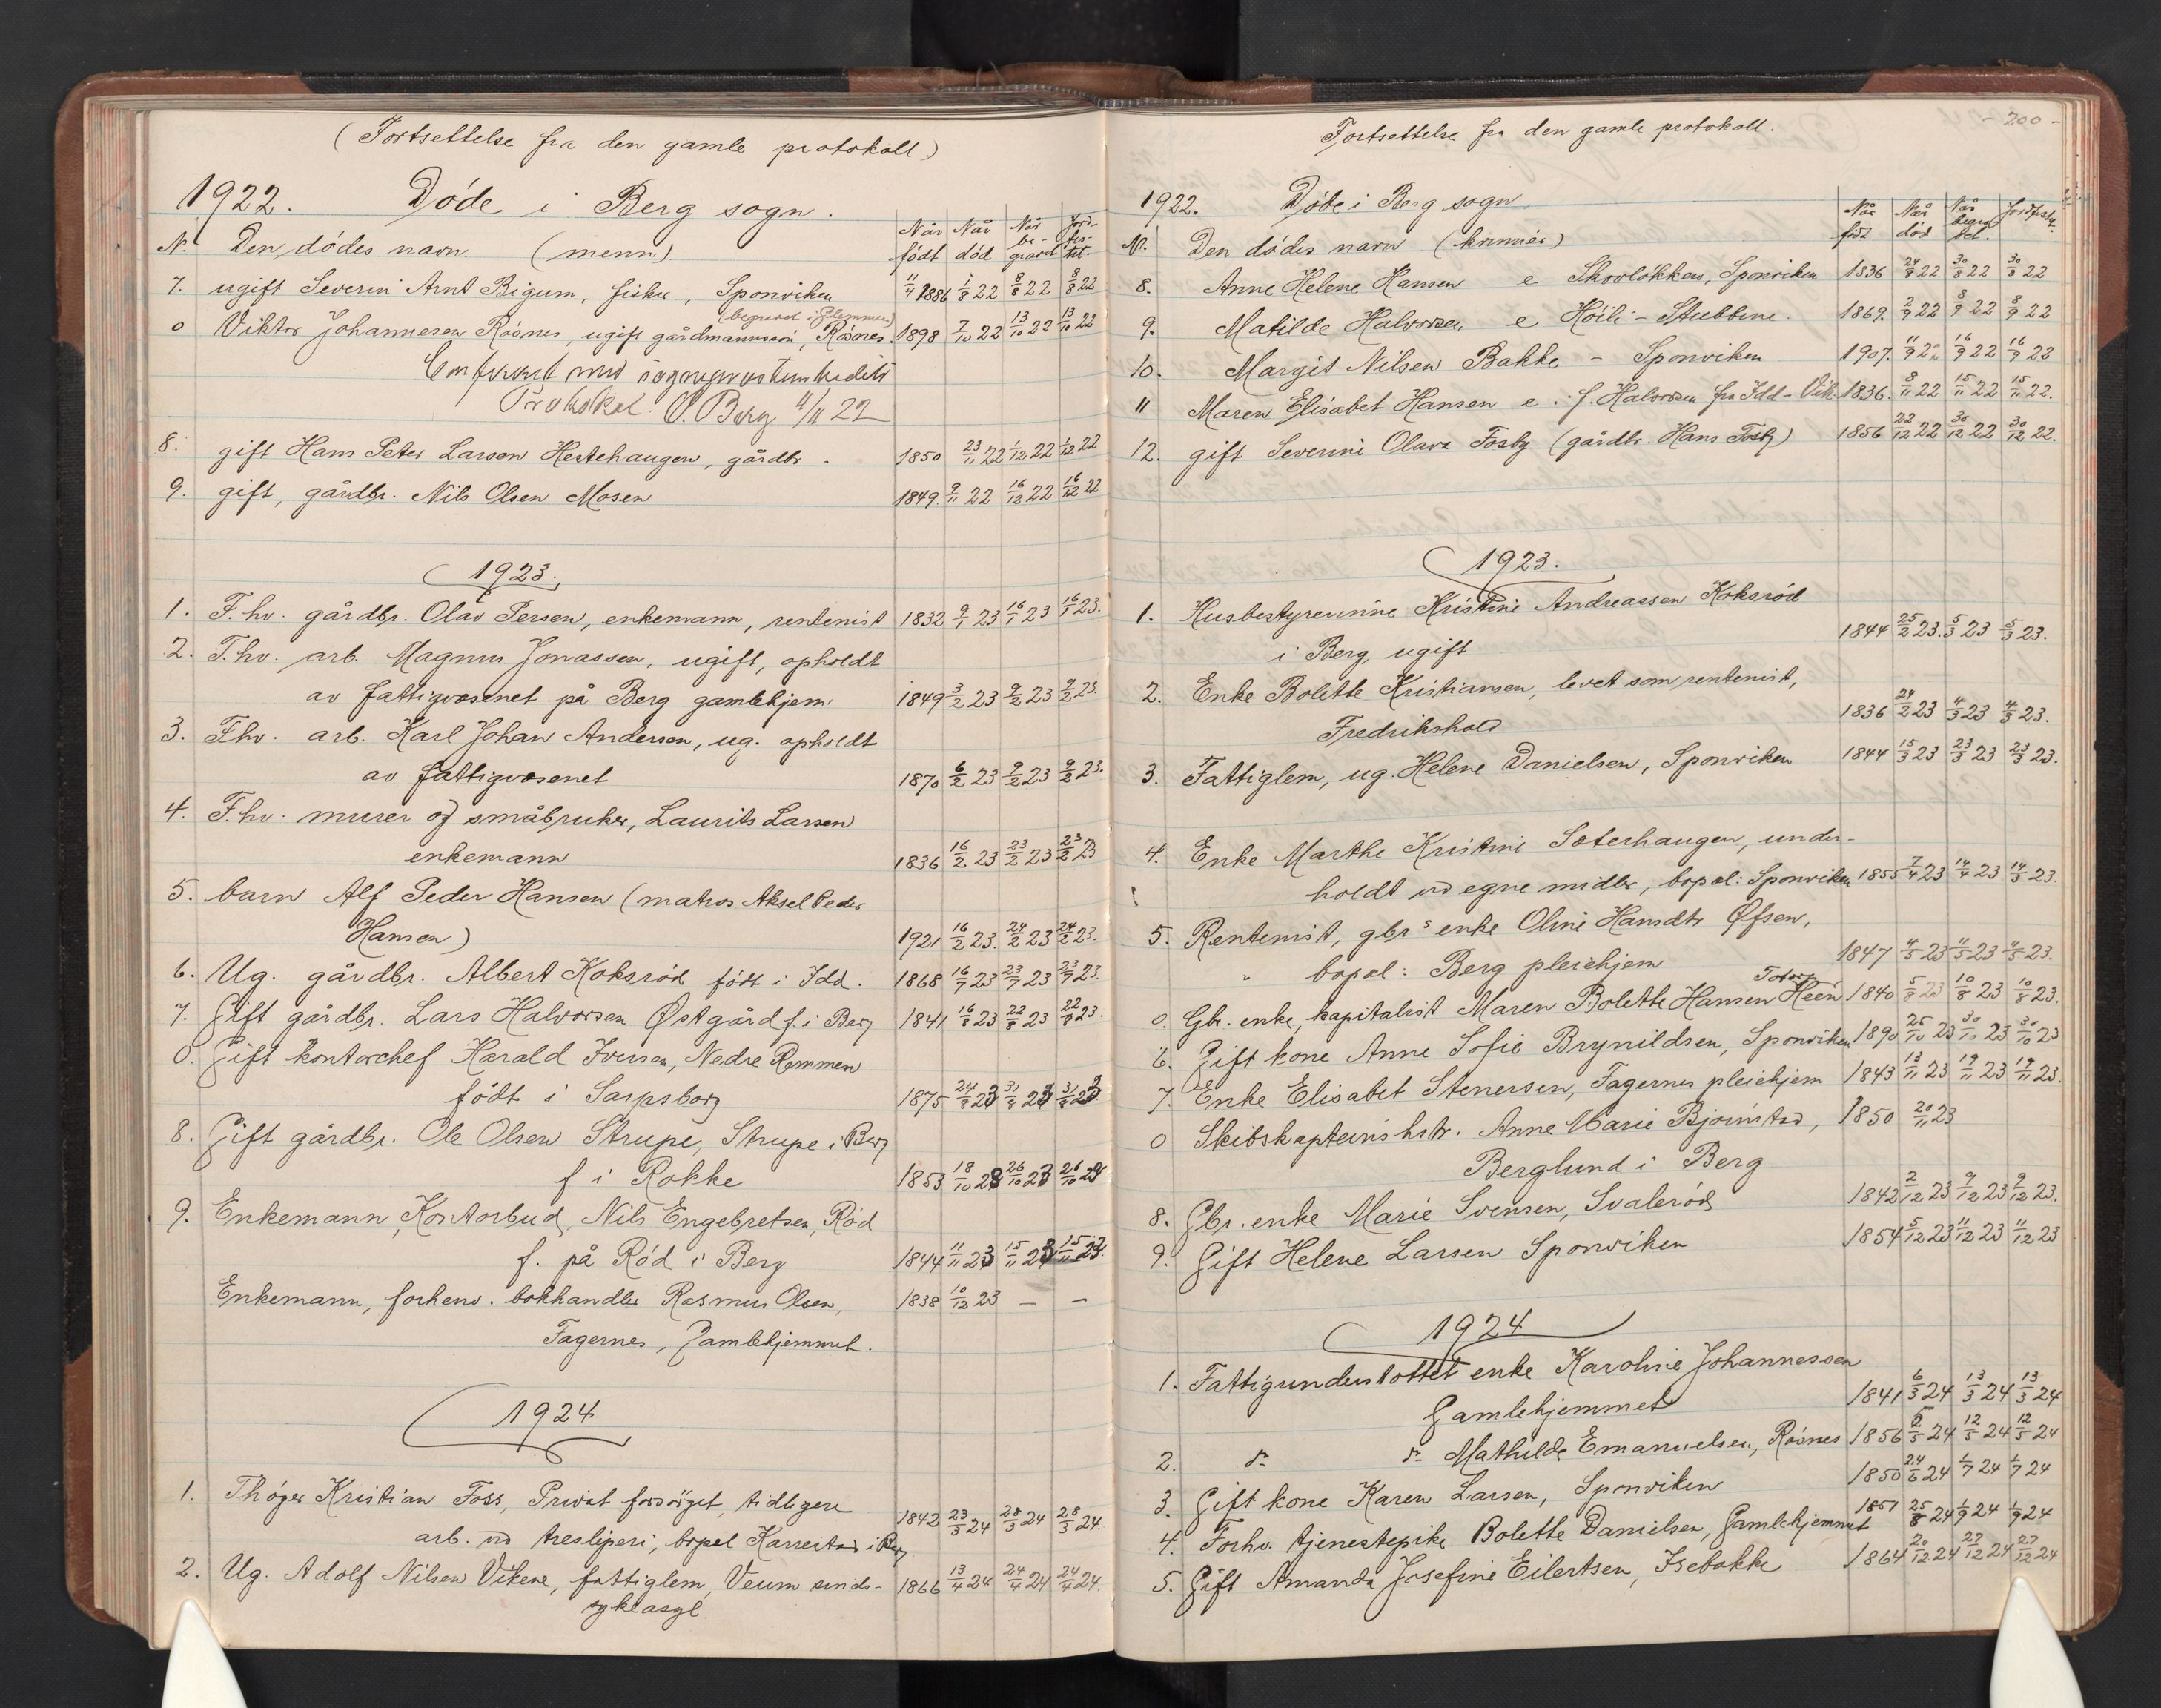 (Fortsettelse fra den gamle protokoll)
1922. Døde i Berg sogn.
N. Den dødes navn (menn) Når født Når død Når be-gravet Jord-fes-tet.
7. ugift Severin Arnt Bigum, fisker, Sponviken 11/4 1886 1/8 22 8/8 22 8/8 22
(begravet i Glemmen)
0 Viktor Johannesen Røsnes, ugift gårdmannssøn, Røsnes. 1898 7/10 22 13/10 22 13/10 22
Conferert med sogneprestembedets
Protokol. O. Berg 4/11 22
8. gift Hans Peter Larsen Hestehaugen, gårdbr. 1850 23/11 22 1/12 22 1/12 22
9. gift, gårdbr. Nils Olsen Mosen 1849. 9/11 22 16/12 22 16/12 22
1923.
1. F. hv. gårdbr. Olav Persen, enkemann, rentenist 1832 9/1 23 16/1 23 16/1 23.
2. F. hv. arb. Magnus Jonassen, ugift, opholdt
av fattigvæsenet på Berg gamlehjem. 1849 3/2 23 9/2 23 9/2 23.
3. F hv. arb. Karl Johan Andersen, ug. opholdt
av fattigvæsenet 1870 6/2 23 9/2 23 9/2 23.
4. F. hv. murer og småbruker, Laurits Larsen
enkemann 1836 16/2 23 23/2 23 23/2 23
5. barn Alf Peder Hansen (matros Aksel Peder
Hansen) 1921 16/2 23. 24/2 23 24/2 23.
6. Ug. gårdbr. Albert Koksrød født i Idd. 1868 16/7 23 23/7 23 23/7 23.
7. Gift gårdbr. Lars Halvorsen Østgård f. i Berg 1841 16/8 23 22/8 23 22/8 23.
0. Gift kontorchef Harald Iversen, Nedre Remmen
født i Sarpsborg 1875 24/8 23 31/8 23 31/8 23
8. Gift gårdbr. Ole Olsen Strupe, Strupe i Berg
f i Rokke 1853 18/10 23 26/10 23 26/10 23
9. Enkemann, Kontorbud, Nils Engebretsen, Rød
f. på Rød i Berg 1844 11/11 23 15/11 23 15/11 23.
Enkemann, forhenv. bokhandler Rasmus Olsen, 1838 10/12 23 — —
Fagernes, Gamlehjemmet.
1924
1. Thøger Kristian Foss, Privat forsørget, tidligere
arb. ved tresliperi, bopel Karrestad i Berg 1842 23/3 24 28/3 24 28/3 24.
2. Ug. Adolf Nilsen Vikene, fattiglem, Veum sinds- 1866 13/4 24 24/4 24 24/4 24.
sykeasyl
- 200 -
Fortsettelse fra den gamle protokoll.
1922. Døde i Berg sogn.
N. Den dødes navn (kvinner) Når født Når død Når begra-vet. Jordfestet.
8. Anne Helene Hansen e Skovløkken, Sponviken 1836 24/8 22 30/8 22 30/8 22
9. Matilde Halvorsen e Høili - Stubbene. 1869. 2/9 22 8/9 22 8/9 22
10. Margit Nilsen Bakke - Sponviken 1907. 11/9 22 16/9 22 16/9 22
11 Maren Elisabet Hansen e. f. Halvorsen fra Idd - Vik. 1836. 8/11 22 15/11 22 15/11 22.
12. gift Severine Olava Fosby (gårdbr. Hans Fosby) 1856 22/12 22 30/12 22 30/12 22.
1923.
1. Husbestyrerinne Kristine Andreassen Koksrød
i Berg, ugift 1844 25/2 23. 5/3 23 5/3 23.
2. Enke Bolette Kristiansen, levet som rentenist,
Fredrikshald 1836 24/2 23 4/3 23 4/3 23.
3. Fattiglem, ug. Helene Danielsen, Sponviken 1844 15/3 23 23/3 23 23/3 23.
4. Enke Marthe Kristine Sæterhaugen, under-
holdt ved egne midler, bopel: Sponviken 1855 7/4 23 14/4 23 14/3 23.
5. Rentenist, gbr.s enke Oline Hansdtr Øfsen,
" bopel: Berg pleiehjem 1847 4/5 23 11/5 23 11/5 23.
Torp
0. Gbr. enke, kapitalist Maren Bolette Hansen Heen 1840 5/8 23 10/8 23 10/8 23.
6. Gift kone Anne Sofie Brynildsen, Sponviken 1890 25/10 23 30/10 23 30/10 23
7. Enke Elisabet Stenersen, Fagernes pleiehjem 1843 13/11 23 19/11 23 19/11 23.
0 Skibskapteins hstr. Anne Marie Bjørnstad, 1850 20/11 23
Berglund i Berg
8. Gbr. enke Marie Svensen, Svalerød 1842 2/12 23 9/12 23 9/12 23.
9. Gift Helene Larsen Sponviken 1854 5/12 23 11/12 23 11/12 23
1924
1. Fattigunderstøttet enke Karoline Johannessen
Gamlehjemmet 1841 6/3 24 13/3 24 13/3 24
2. do do Mathilde Emanuelsen, Røsnes 1856 5/5 24 12/5 24 12/5 24
3. Gift kone Karen Larsen, Sponviken 1850 24/6 24 1/7 24 1/7 24
4. Forhv. tjenestepike Bolette Danielsen, Gamlehjemmet 1851 25/8 24 1/9 24 1/9 24
5. Gift Amanda Josefine Eilertsen, Isebakke 1864 20/12 24 27/12 24 27/12 24